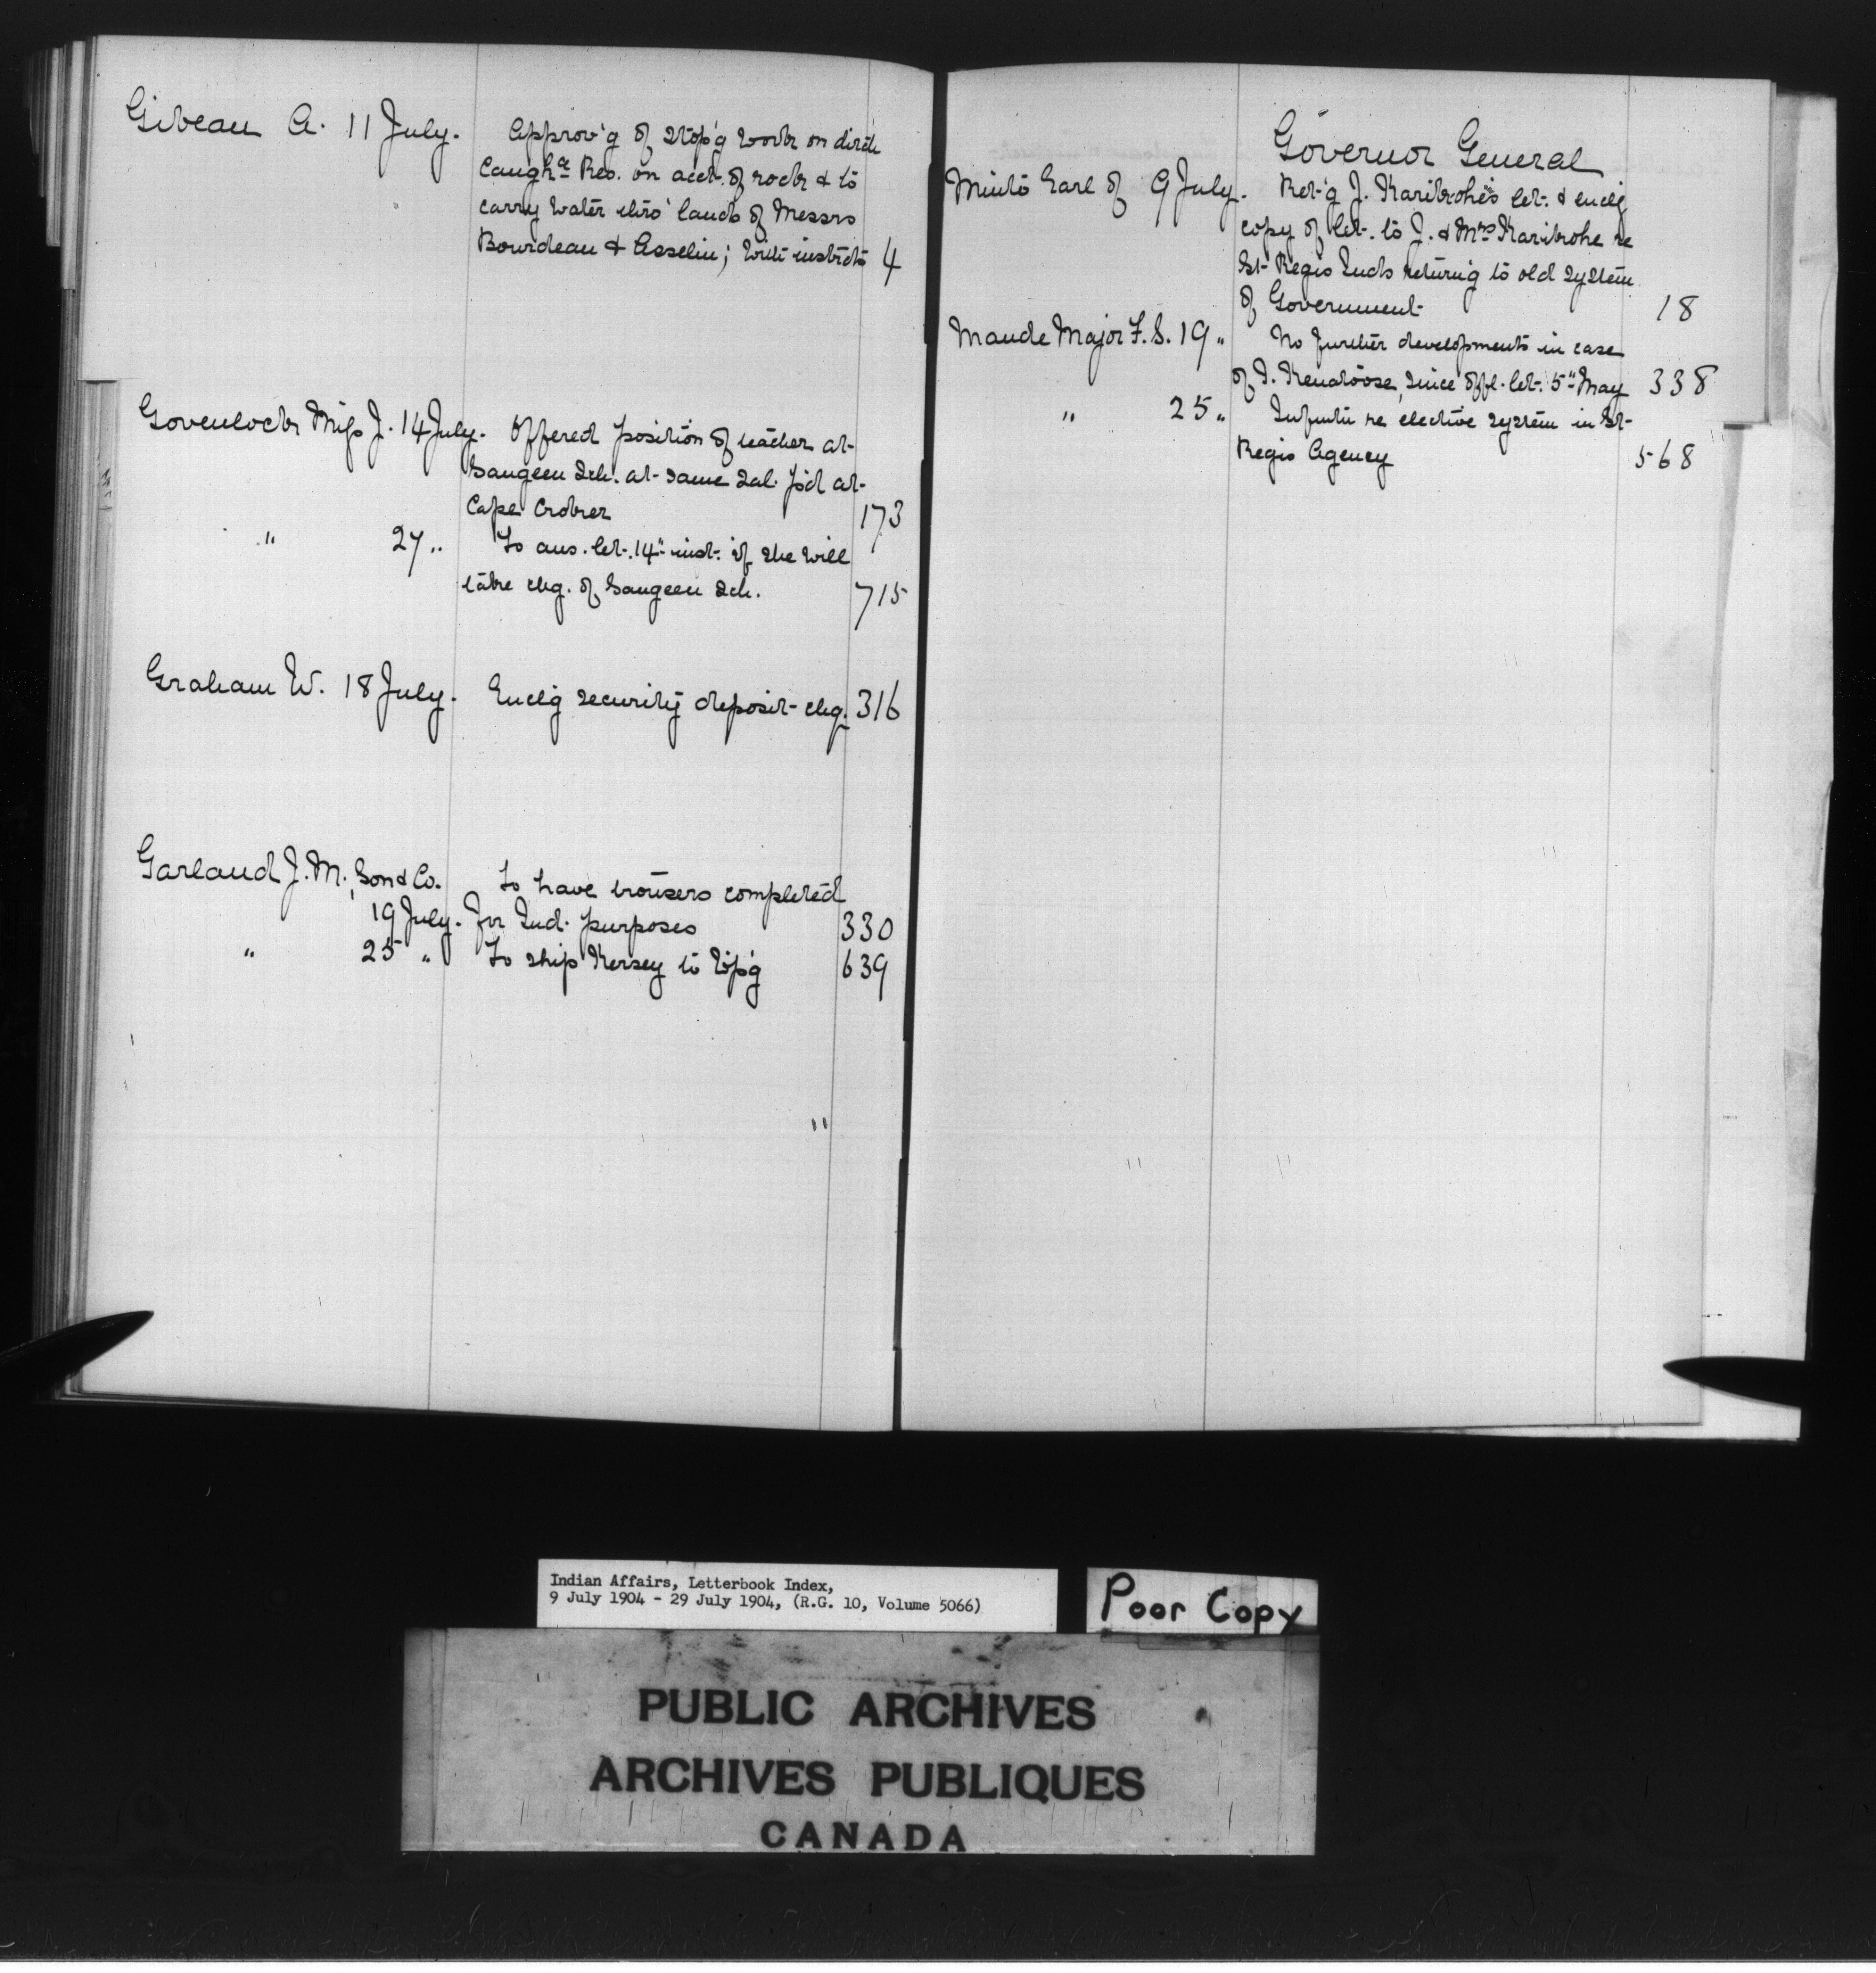 Gibeau A. 11 July. Approv'g of stop'g work on ditch
Caugh<sup>a</sup> Res. on acct. of rock & to
carry water thro' lands of Messrs
Bourdeau & Asselin; with instrcts 4
Govenlock Miss J. 14 July. Offered position of teacher at
Saugeen Sch. at same sal. p'd at
Cape Croker 173
" 27 " To ans. let. 14" inst. if she will
take chg. of Saugeen Sch. 715
Graham W. 18 July. Enclg security deposit chq. 316
Garland J. M., Son & Co. To have trousers completed
19 July. for Ind. purposes 330
" 25 " To ship Kersey to Wp'g 639
Governor General
Minto Earl of 9 July. Ret'g J. Karibrohe's let. & enclg
copy of let. to J. & Mrs Karibrohe re
St Regis Inds returng to old system
of Government 18
Maude Major F. S. 19 " No further developments in case
of I. since offl. let. 5" May 338
" 25 " Infmtn re elective system in St
Regis Agency 568
Indian Affairs, Letterbook Index,
9 July 1904 - 29 July 1904, (R.G. 10, Volume 5066)
Poor Copy
PUBLIC ARCHIVES
ARCHIVES PUBLIQUES
CANADA